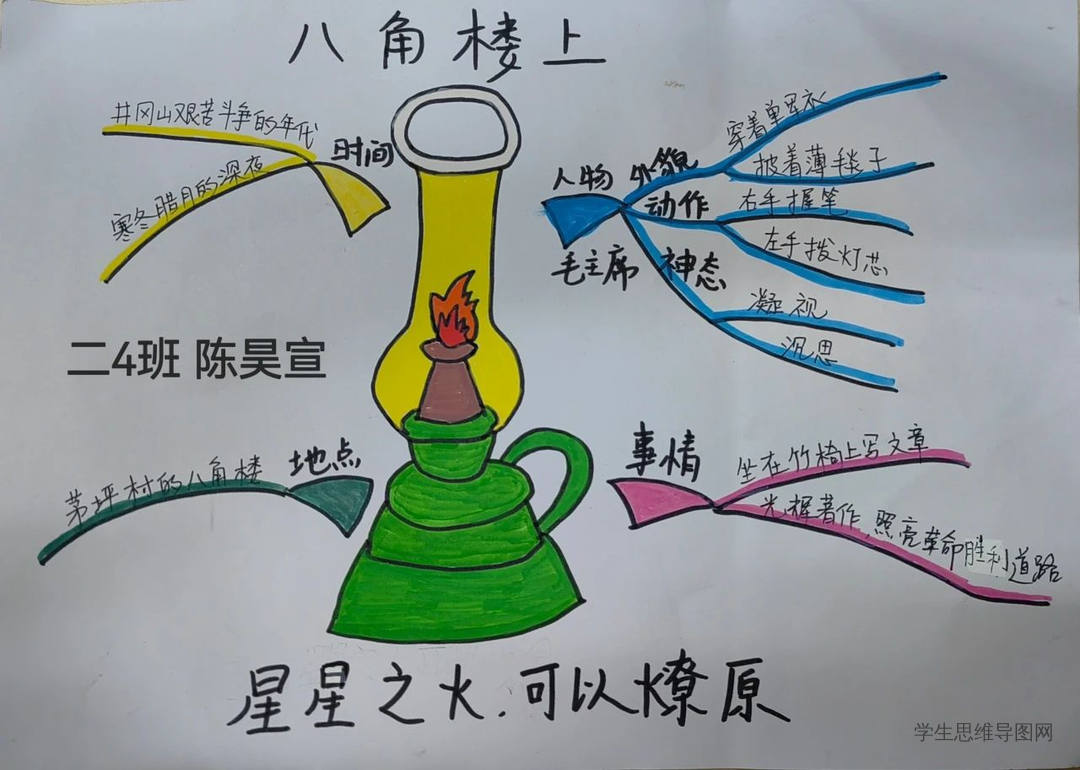 八角楼上
井冈山艰苦斗争的年代
时间
寒冬腊月的深夜
人物
毛主席
外貌
穿着单军衣
披着薄毯子
动作
右手握笔
左手拨灯芯
神态
凝视
沉思
二4班 陈昊宣
地点
茅坪村的八角楼
事情
坐在竹椅上写文章
光辉著作,照亮革命胜利道路
星星之火,可以燎原
学生思维导图网